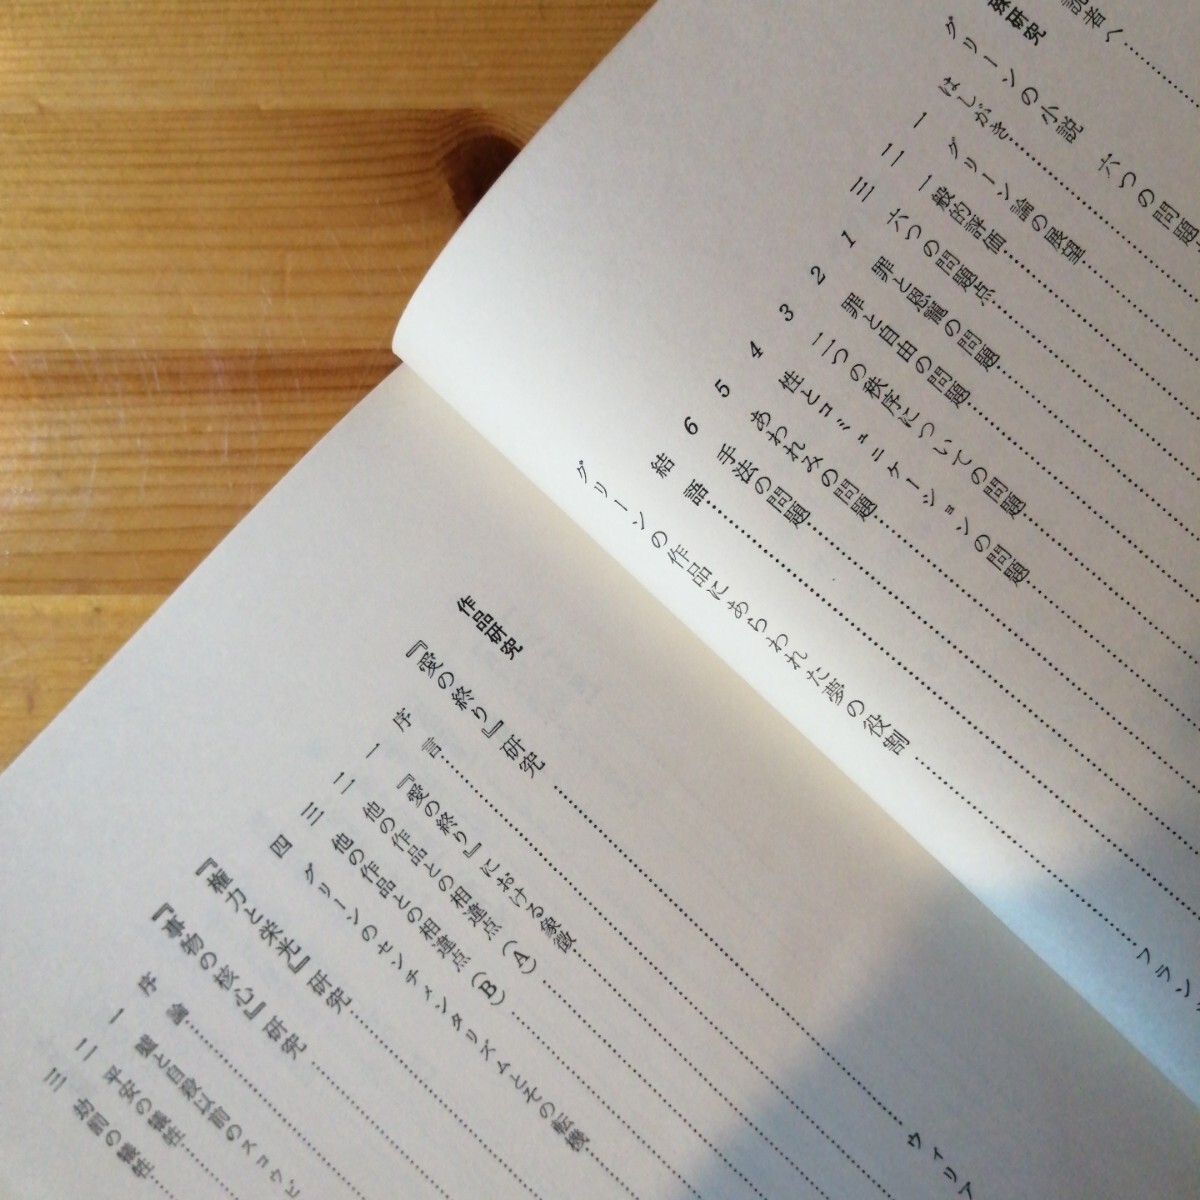 読者へ
研究
グリーンの小説 六つの問題
はしがき
一 グリーン論の展望
二 一般的評価
三 六つの問題点
1 罪と恩寵の問題
2 罪と自由の問題
3 二つの秩序についての問題
4 性とコミュニケーションの問題
5 あわれみの問題
6 手法の問題
結語
グリーンの作品にあらわれた夢の役割 フラン
作品研究
『愛の終り』研究 ウィリア
序言
一 『愛の終り』における象徴
二 他の作品との相違点(A)
三 他の作品との相違点(B)
四 グリーンのセンチメンタリズムとその転機
『権力と栄光』研究
『事物の核心』研究
序論
一 聖と自殺以前のスコウビ
二 平安の犠牲
三 劫罰の犠牲